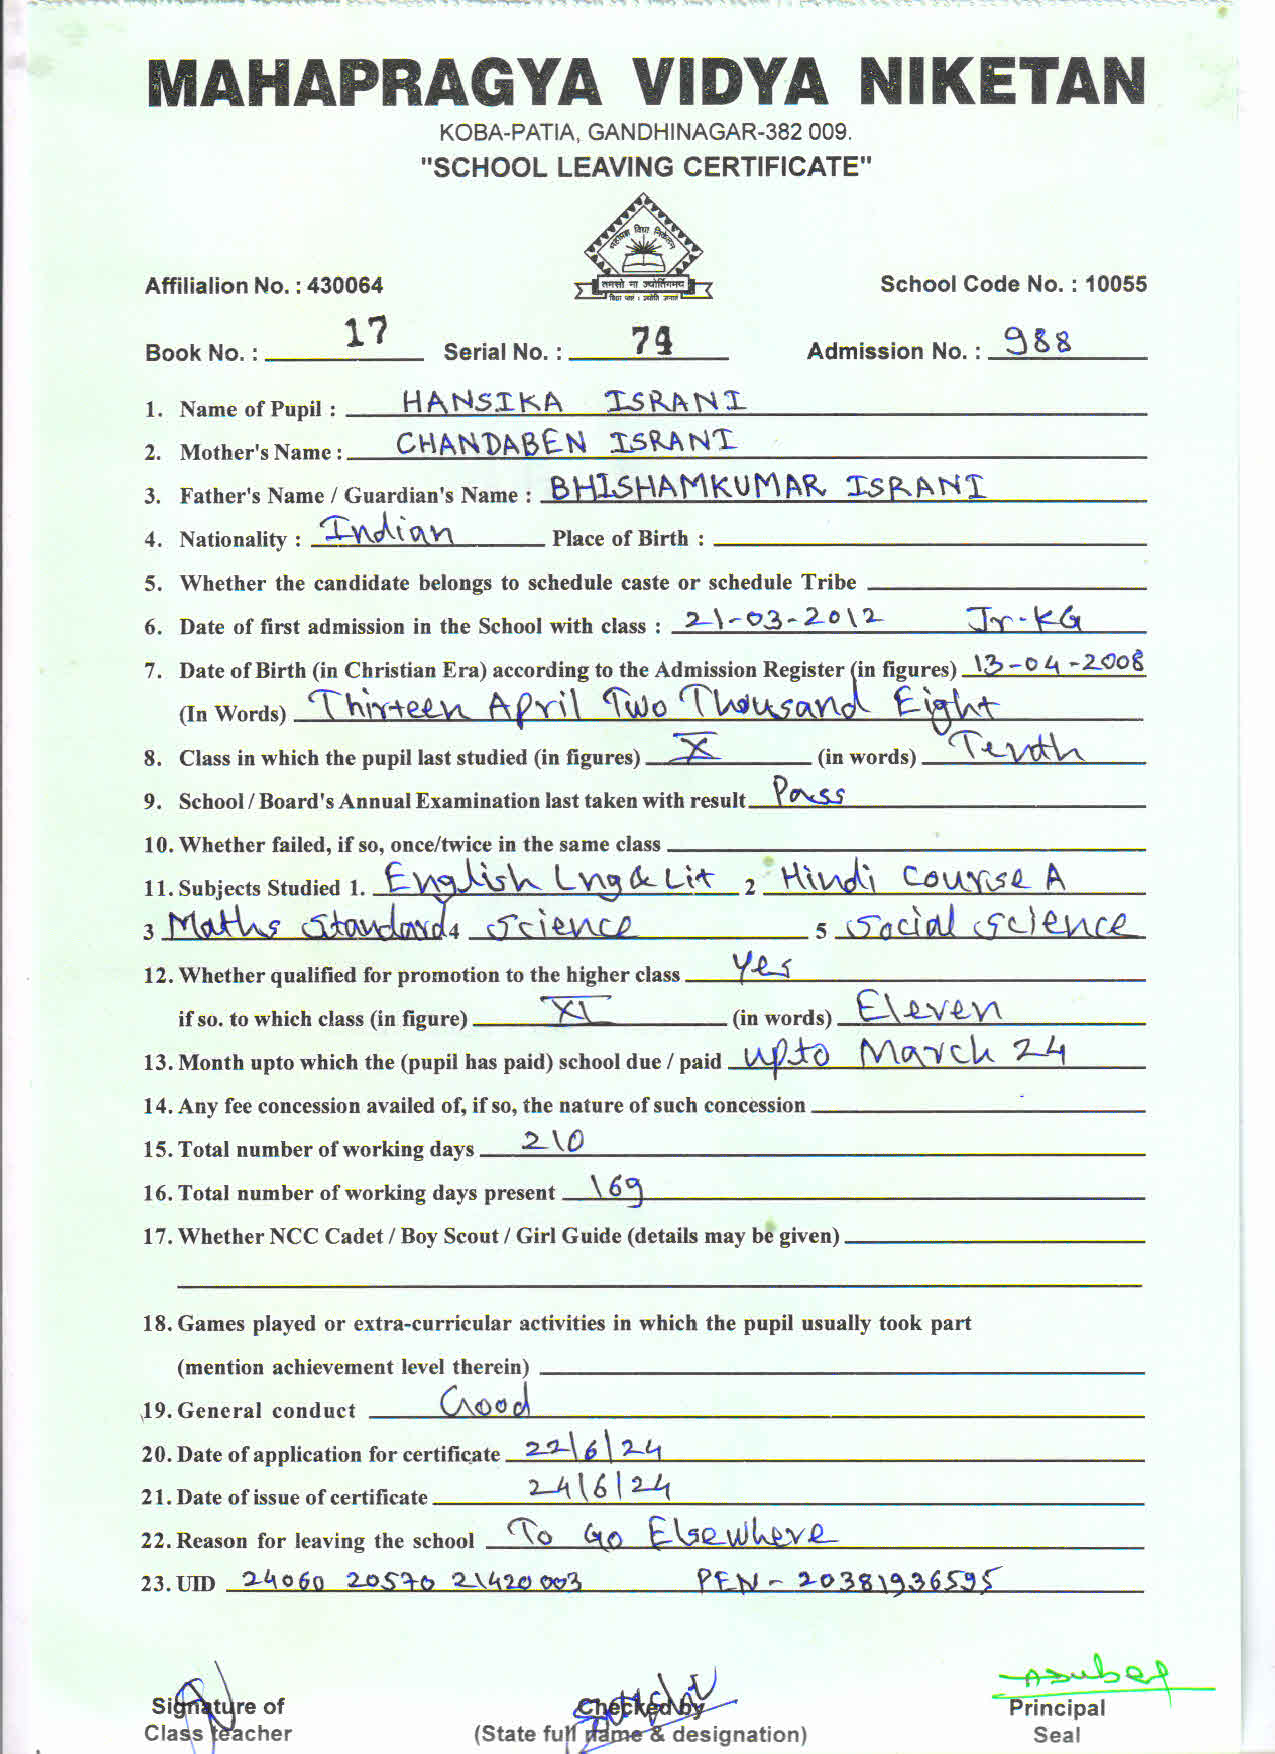 MAHAPRAGYA VIDYA NIKETAN
KOBA-PATIA, GANDHINAGAR-382 009.
"SCHOOL LEAVING CERTIFICATE"
महाप्रज्ञ विद्या निकेतन
तमसो मा ज्योतिर्गमय
Affilialion No. : 430064 School Code No. : 10055
Book No. : 17 Serial No. : 74 Admission No. : 988
1. Name of Pupil : HANSIKA ISRANI
2. Mother's Name : CHANDABEN ISRANI
3. Father's Name / Guardian's Name : BHISHAMKUMAR ISRANI
4. Nationality : Indian Place of Birth :
5. Whether the candidate belongs to schedule caste or schedule Tribe
6. Date of first admission in the School with class : 21-03-2012 Jr-KG
7. Date of Birth (in Christian Era) according to the Admission Register (in figures) 13-04-2008
(In Words) Thirteen April Two Thousand Eight
8. Class in which the pupil last studied (in figures) X (in words) Tenth
9. School / Board's Annual Examination last taken with result Pass
10. Whether failed, if so, once/twice in the same class
11. Subjects Studied 1. English Lng & Lit 2 Hindi Course A
3 Maths Standard 4 Science 5 Social Science
12. Whether qualified for promotion to the higher class Yes
if so. to which class (in figure) XI (in words) Eleven
13. Month upto which the (pupil has paid) school due / paid upto March 24
14. Any fee concession availed of, if so, the nature of such concession
15. Total number of working days 210
16. Total number of working days present 169
17. Whether NCC Cadet / Boy Scout / Girl Guide (details may be given)
18. Games played or extra-curricular activities in which the pupil usually took part
(mention achievement level therein)
19. General conduct Good
20. Date of application for certificate 22/6/24
21. Date of issue of certificate 24/6/24
22. Reason for leaving the school To Go Elsewhere
23. UID 24060 20570 21420003 PEN - 20381936595
Signature of Checked by Principal
Class teacher (State full name & designation) Seal